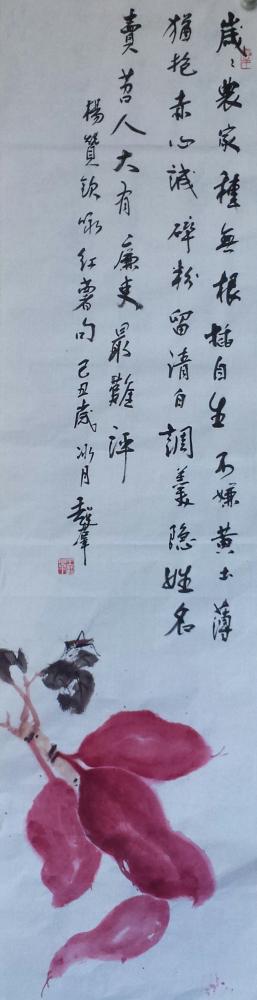 歲々農家種無根插自生不嫌黃土薄
猶抱赤心誠碎粉留清白調羹隐姓名
賣苕人大有廉吏最難評
楊贊欽咏紅薯句己丑歲冰月